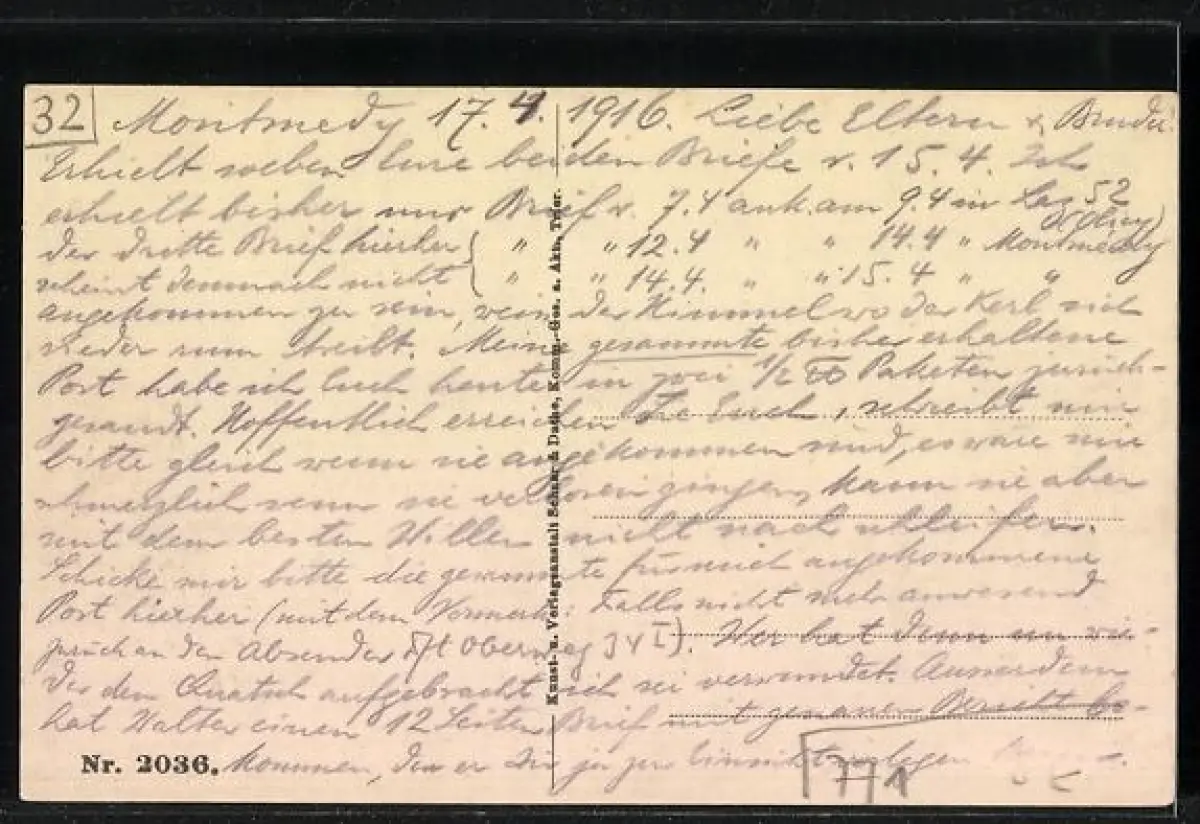 32
Montmedy 17. 4. 1916. Liebe Eltern & Bruder.
Erhielt soeben Eure beiden Briefe v. 15. 4. Ich
erhielt bisher nur Brief v. 7.4 ank. am 9.4 in Laz 52
der dritte Brief hierher { " " 12.4 " " 14.4 " Montmedy
scheint demnach nicht { " " 14.4. " " 15.4 " "
angekommen zu sein, weiss der Himmel wo der Kerl sich
wieder rum treibt. Meine gesammte bisher erhaltene
Post habe ich Euch heute in zwei 1/2 Paketen zurück-
gesandt. Hoffentlich erreichen sie Euch, schreibt mir
bitte gleich wenn sie angekommen sind, es wäre mir
schmerzlich wenn sie verloren gingen, kann sie aber
mit dem besten Willen nicht nach schleifen.
Schicke mir bitte die gesammte für mich angekommene
Post hierher (mit dem Vermerk: Falls nicht mehr anwesend
zurück an den Absender 34 I). Wer hat denn nur wie-
der den Quatsch aufgebracht ich sei verwundet. Ausserdem
hat Walter einen 12 Seiten Brief mit genauen Bericht be-
kommen, den er Dir ja zur Einsicht vorlegen
Nr. 2036.
Kunst- u. Verlagsanstalt Schaar & Dathe, Komm.-Ges. a. Akt., Trier.